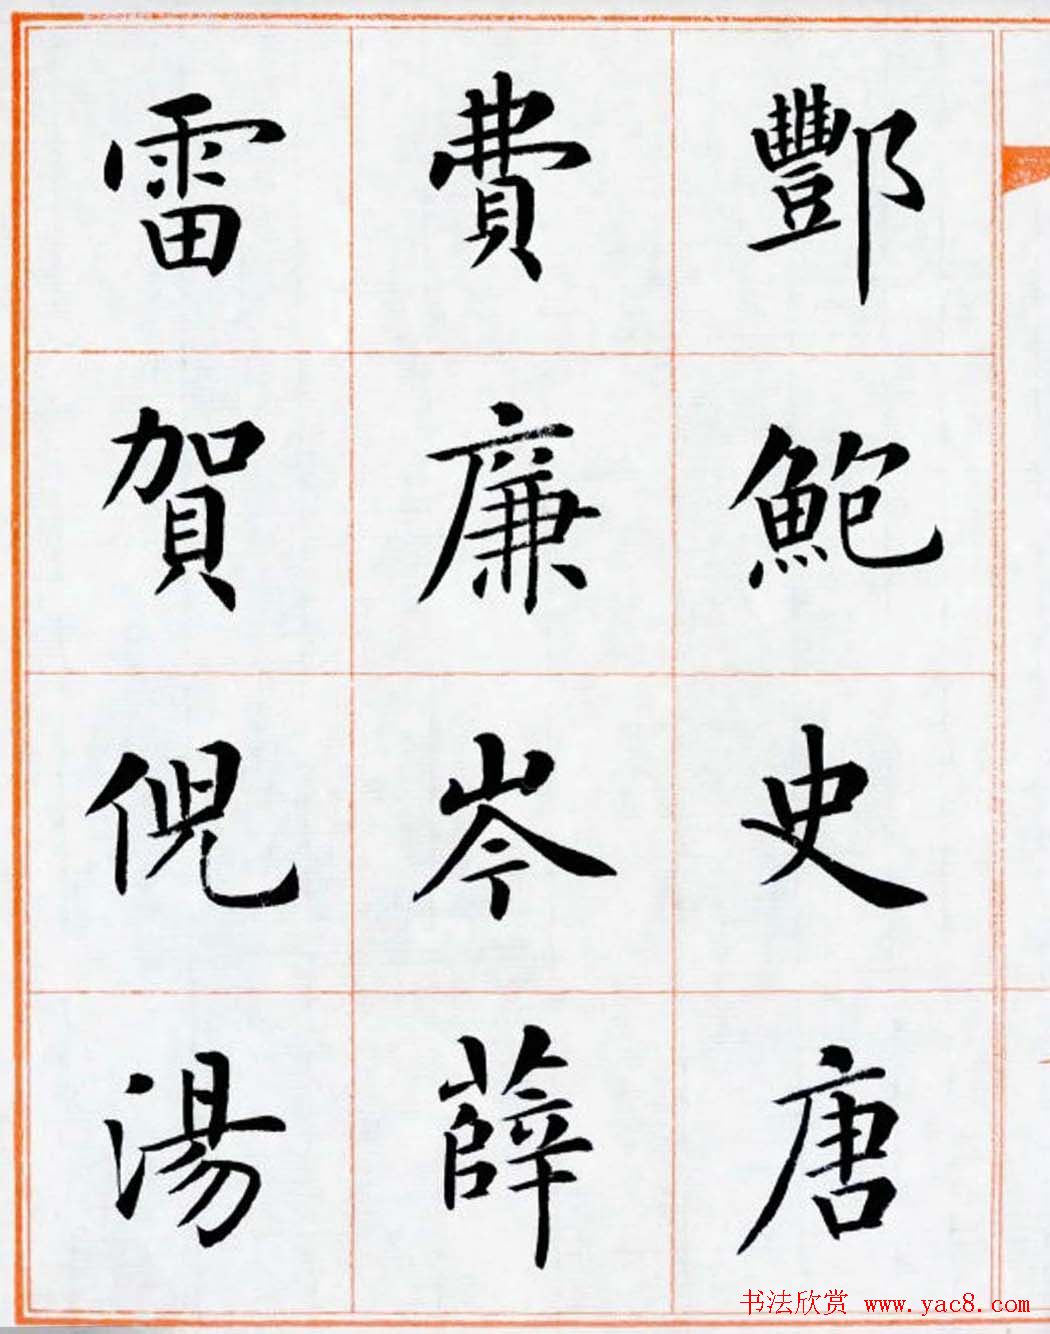 酆鮑史唐
費廉岑薛
雷賀倪湯
书法欣赏 www.yac8.com